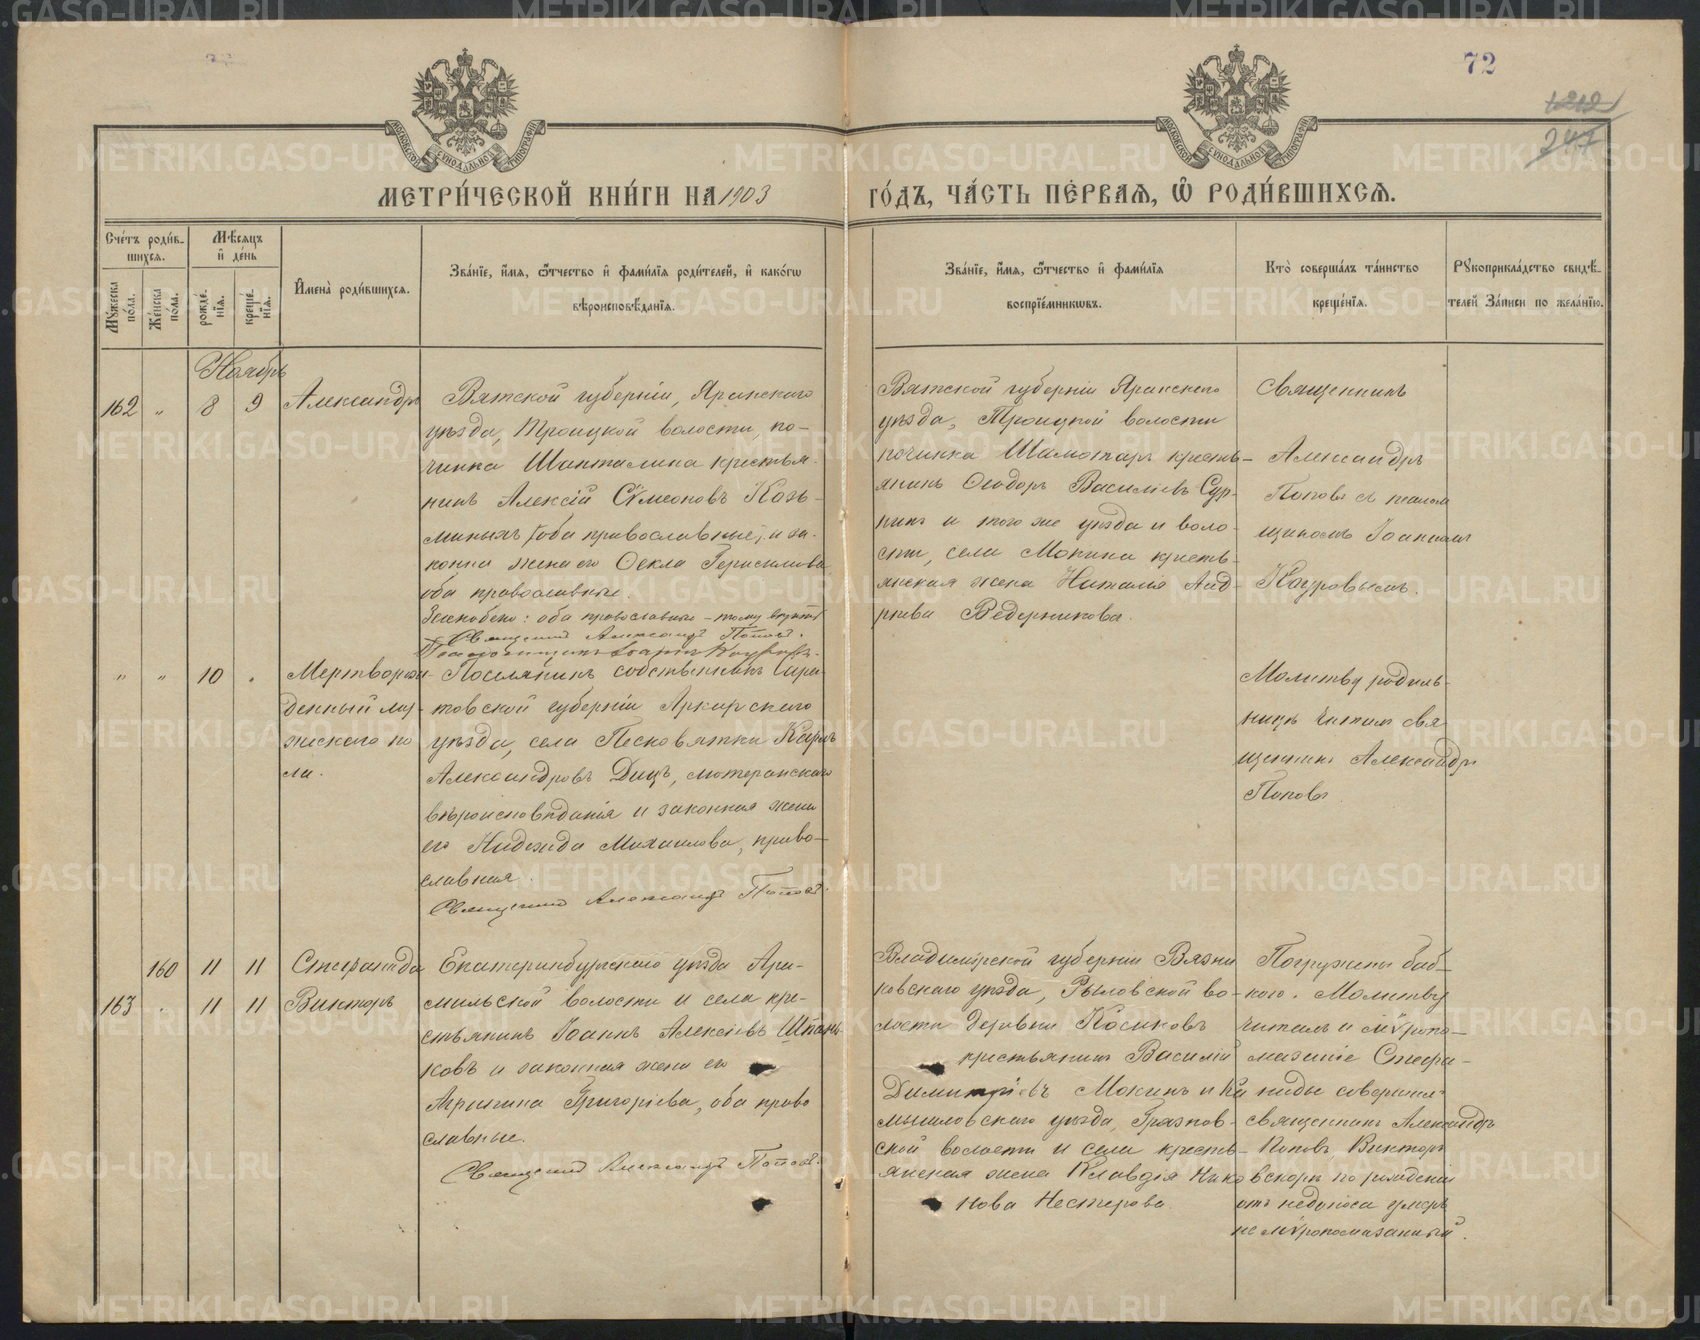 72
1212
247
МОСКОВСКОЙ СѴНОДАЛЬНОЙ ТИПОГРАФІИ
МОСКОВСКОЙ СѴНОДАЛЬНОЙ ТИПОГРАФІИ
МЕТРИ́ЧЕСКОЙ КНИ́ГИ НА 1903 ГО́ДЪ, ЧА́СТЬ ПЕ́РВАѦ, Ѽ РОДИ́ВШИХСѦ.
Сче́тъ роди́в-
шихсѧ.
Му́жеска по́ла.
Же́нска по́ла.
Мѣ́сѧцъ
и҆ де́нь
рожде́-
нїѧ.
креще́-
нїѧ.
И҆мена̀ роди́вшихсѧ.
Зва́нїе, и҆́мѧ, ѻ҆́тчество и҆ фами́лїѧ роди́телей, и҆ како́гѡ
вѣроисповѣ́данїѧ.
Зва́нїе, и҆́мѧ, ѻ҆́тчество и҆ фами́лїѧ
воспрїе́мникѡвъ.
Кто̀ соверша́лъ та́инство
креще́нїѧ.
Рукоприкла́дство свидѣ́-
телей за́писи по жела́нїю.
Ноябрь
162 „ 8 9
Александръ
Вятской губерніи, Яранскаго
уѣзда, Троицкой волости, по-
чинка Шантмина крестья-
нинъ Алексій Сѵмеоновъ Козь-
миныхъ (оба православные) и за-
конная жена его Ѳекла Герасимова
оба православные.
Заскоблено: оба православные – тому вѣрить
Священникъ Александръ Поповъ.
Псаломщикъ Іоаннъ Кауровъ.
Вятской губерніи Яранскаго
уѣзда, Троицкой волости
починка Шамотаръ кресть-
янинъ Ѳеодоръ Василіевъ Сур-
нинъ и того же уѣзда и воло-
сти, села Мокина кресть-
янская жена Наталія Анд-
реева Ведерникова.
Священникъ
Александръ
Поповъ съ псалом
щикомъ Іоанномъ
Кауровымъ.
„ „ 10 „
Мертворож-
денный му-
жескаго по
ла.
Поселянинъ собственникъ Сара-
товской губерніи Аткарскаго
уѣзда, села Песковатки Карлъ
Александровъ Дицъ, лютеранскаго
вѣроисповѣданія и законная жена
его Надежда Михаилова, право-
славная.
Священникъ Александръ Поповъ.
Молитву родиль-
ницѣ читалъ свя
щенникъ Александръ
Поповъ
160 11 11
Стефанида
163 . 11 11
Викторъ
Екатеринбургскаго уѣзда Ара-
мильской волости и села кре-
стьянинъ Іоаннъ Алексіевъ Шпань
ковъ и законная жена его
Агрипина Григоріева, оба право
славные.
Священникъ Александръ Поповъ.
Владимірской губерніи Вязни
ковскаго уѣзда, Рыловской во-
лости деревни Косиковъ
крестьянинъ Василій
Димитріевъ Мокинъ и Ка
мышловскаго уѣзда, Грязнов-
ской волости и села кресть-
янская жена Клавдія Нико
нова Нестерова.
Погружены баб-
кою. Молитву
читалъ и мѵропо-
мазаніе Стефа-
ниды совершилъ
священникъ Александръ
Поповъ, Викторъ
вскорѣ по рожденіи
отъ недоноса умеръ
не мѵропомазанный.